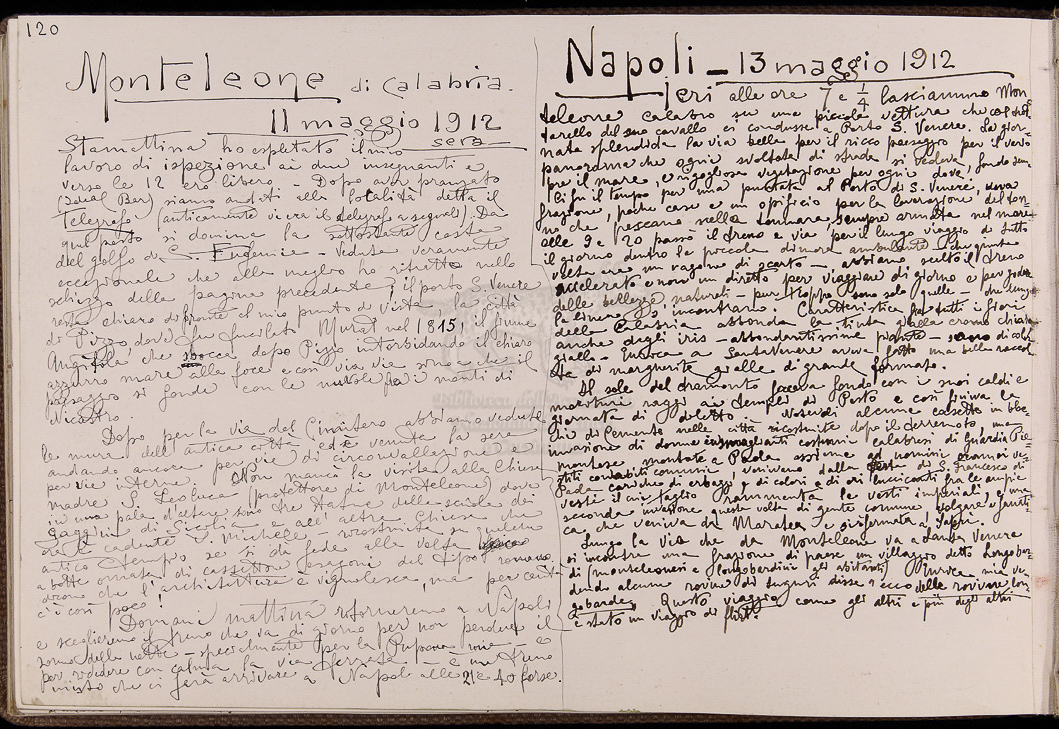 120
Monteleone di Calabria.
11 maggio 1912
sera
Stamattina ho espletato il mio
lavoro di ispezione ai due insegnanti e
verso le 12 ero libero - Dopo aver pranzato
(Ideal Bar) siamo andati alla località detta il
Telegrafo (anticamente vi era il telegrafo a segnali). Da
quel posto si domina la sottostante costa
del golfo di S. Eufemia - Vedute veramente
eccezionale che alla meglio ho ritratto nello
schizzo della pagina precedente; il porto S. Venere
resta chiaro di fronte al mio punto di vista - la città
di Pizzo dove fu fucilato Murat nel 1815, il fiume
Angitola, che sbocca dopo Pizzo intorbidando il chiaro
azzurro mare alla foce e così via via sino che il
paesaggio si fonde con le nuvole fra i monti di
Nicastro.
Dopo per la via del Cimitero abbiam vedute
le mura dell'antica città ed è venuta la sera
andando ancora per vie di circonvallazione e
per vie interne. Non mancò la visita alla Chiesa
madre S. Leoluca (protettore di Monteleone) dove
in una pala d'altare sono tre statue della scuola dei
Gaggini di Sicilia e all'altra Chiesa che
ora è cadente S. Michele - ricostruita su
antico tempio se si dà fede alla volta
a botte ornata di cassettoni
che l'architettura è vignolesca, ma per cento
ci è così poco!
Domani mattina ritorneremo a Napoli
e sceglieremo il treno che va di giorno per non perdere il
sonno della notte - specialmente per la Pupona mia - e
per rivedere con calma la via ferrata - è un treno
misto che ci farà arrivare a Napoli alle 21 e 40 forse.
Napoli - 13 maggio 1912
Jeri alle ore 7 e 1/4 lasciammo Mon
teleone calabro su una piccola vettura che col trot
tarello del suo cavallo ci condusse a Porto S. Venere. La gior
nata splendida la via bella per il ricco paesaggio per il vero
panorama che ogni svoltata di strada si vedeva, fondo sem
pre il mare, e rigogliosa vegetazione per ogni dove,
Ci fu il tempo per una puntata al Porto di S. Venere, misera
frazione, poche case e un opificio per la lavorazione del ton
no che pescano nella tonnara sempre armata nel mare
alle 9 e 20 passò il treno e via per il lungo viaggio di tutto
il giorno dentro la piccola dimora ambulante che questa
volta era un vagone di scarto - abbiamo scelto il treno
accelerato e non un diretto per viaggiare di giorno e per godere
delle bellezze naturali - pur troppo sono solo quelle - che lungo
la linea si incontrano. Caratteristica fra tutti i fiori
della Calabria abbonda la tinta gialla cromo chiaro
anche degli iris - abbondantissime piante - sono di color
giallo - Nuccia a Santa Venere aveva fatto una bella raccol
ta di margherite gialle di grande formato.
Il sole del tramonto faceva fondo con i suoi caldi e
morituri raggi ai templi di Pesto e così finiva la
giornata di diletto. Notevoli alcune casette in bloc
chi di cemento nelle città ricostruite dopo il terremoto, una
invasione di donne in smaglianti costumi calabresi di Guardia Pie
montese montate a Paola assieme ad uomini oramai ve
stiti con abiti comuni venivano dalla festa di S. Francesco di
Paola cariche di erbaggi e di colori e di ori luccicanti fra le ampie
vesti il cui taglio rammenta le vesti imperiali, e una
seconda invasione questa volta di gente comune, volgare e fanati
ca che veniva da Maratea e si fermata a Sapri.
Lungo la via che da Monteleone va a Santa Venere
si incontra una frazione di paese un villaggio detto Longobar
di (monteleonesi e longobardini gli abitanti) Nuccia mia ve
dendo alcune rovine di tuguri disse "ecco delle rovine lon
gobarde". Questo viaggio come gli altri e più degli altri
è stato un viaggio di flirt.